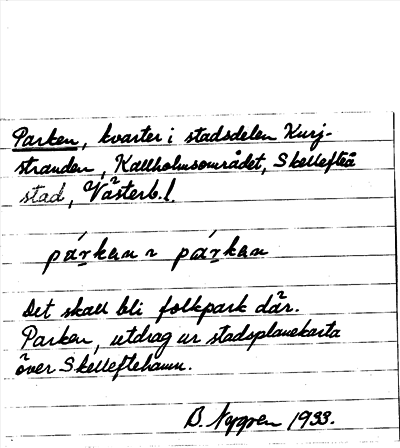 Parken, kvarter i stadsdelen Kurj-
stranden, Kallholmsområdet, Skellefteå
stad, Västerb. l.
párkan ~ párkan
Det skall bli folkpark där.
Parken, utdrag ur stadsplanekarta
över Skelleftehamn.
B. Nygren 1933.